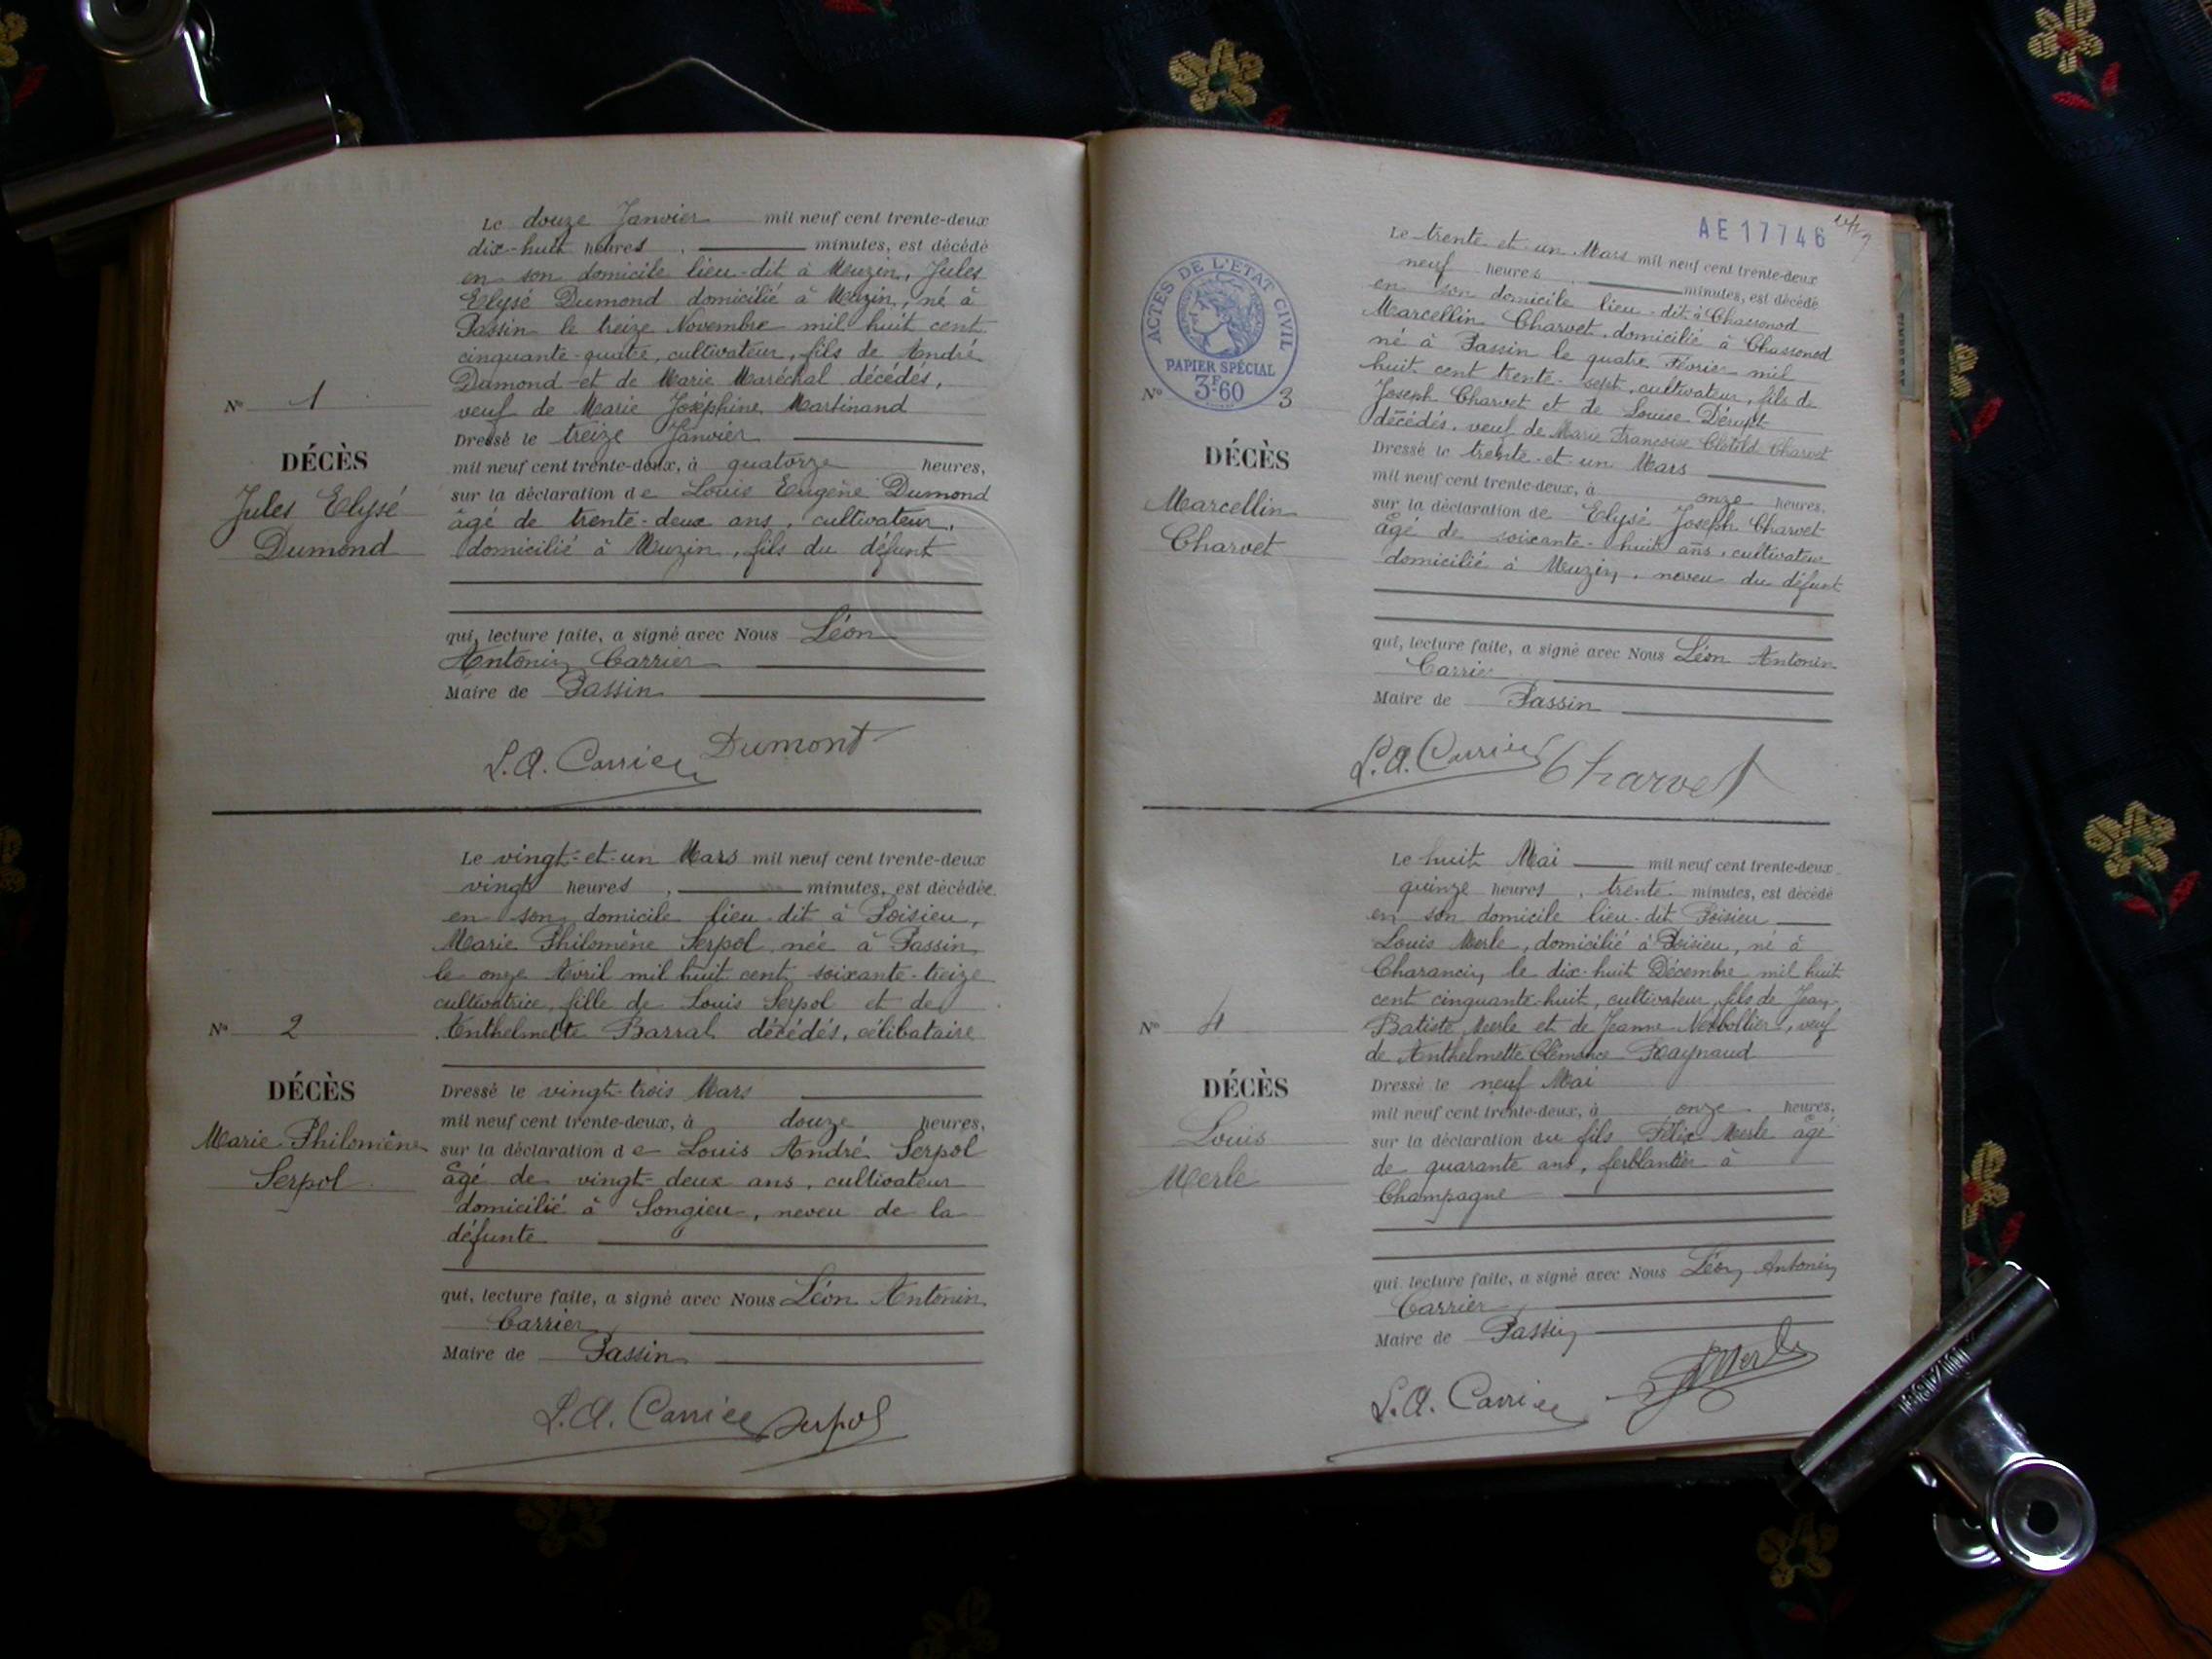 Le douze Janvier mil neuf cent trente-deux
dix-huit heures, minutes, est décédé
en son domicile lieu-dit à Muzin, Jules
Elysé Dumond domicilié à Muzin, né à
Passin le treize Novembre mil huit cent
cinquante-quatre, cultivateur, fils de André
Dumond et de Marie Maréchal décédés,
veuf de Marie Joséphine Martinand
N° 1
DÉCÈS
Jules Elysé
Dumond
Dressé le treize Janvier
mil neuf cent trente-deux, à quatorze heures,
sur la déclaration de Louis Eugène Dumond
âgé de trente-deux ans, cultivateur,
domicilié à Muzin, fils du défunt
qui, lecture faite, a signé avec Nous Léon
Antonin Carrier
Maire de Passin
L.A. Carrier Dumont
Le vingt-et-un Mars mil neuf cent trente-deux
vingt heures, minutes, est décédée
en son domicile lieu-dit à Poisieu,
Marie Philomène Serpol née à Passin
le onze Avril mil huit cent soixante-treize
cultivatrice, fille de Louis Serpol et de
Anthelmette Barral décédés, célibataire
N° 2
DÉCÈS
Marie Philomène
Serpol
Dressé le vingt-trois Mars
mil neuf cent trente-deux, à douze heures,
sur la déclaration de Louis André Serpol
âgé de vingt-deux ans, cultivateur
domicilié à Songieu, neveu de la
défunte
qui, lecture faite, a signé avec Nous Léon Antonin
Carrier
Maire de Passin
L.A. Carrier Serpol
AE 17746
ACTES DE L'ETAT CIVIL
PAPIER SPÉCIAL
3F60
Le trente et un Mars mil neuf cent trente-deux
neuf heures, minutes, est décédé
en son domicile lieu-dit à Chassonod
Marcellin Charvet, domicilié à Chassonod
né à Passin le quatre Février mil
huit cent trente-sept, cultivateur, fils de
Joseph Charvet et de Louise
décédés, veuf de Marie Françoise Clotild Charvet
N° 3
DÉCÈS
Marcellin
Charvet
Dressé le trente-et-un Mars
mil neuf cent trente-deux, à onze heures,
sur la déclaration de Elysé Joseph Charvet
âgé de soixante-huit ans, cultivateur
domicilié à Muzin, neveu du défunt
qui, lecture faite, a signé avec Nous Léon Antonin
Carrier
Maire de Passin
L.A. Carrier Charvet
Le huit Mai mil neuf cent trente-deux
quinze heures, trente minutes, est décédé
en son domicile lieu-dit Poisieu
Louis Merle, domicilié à Poisieu, né à
Charancin le dix-huit Décembre mil huit
cent cinquante-huit, cultivateur, fils de Jean-
Batiste Merle et de Jeanne, veuf
de Anthelmette Clémence Raynaud
N° 4
DÉCÈS
Louis
Merle
Dressé le neuf Mai
mil neuf cent trente-deux, à onze heures,
sur la déclaration du fils Félix Merle âgé
de quarante ans, ferblantier à
Champagne
qui, lecture faite, a signé avec Nous Léon Antonin
Carrier
Maire de Passin
L.A. Carrier Merle